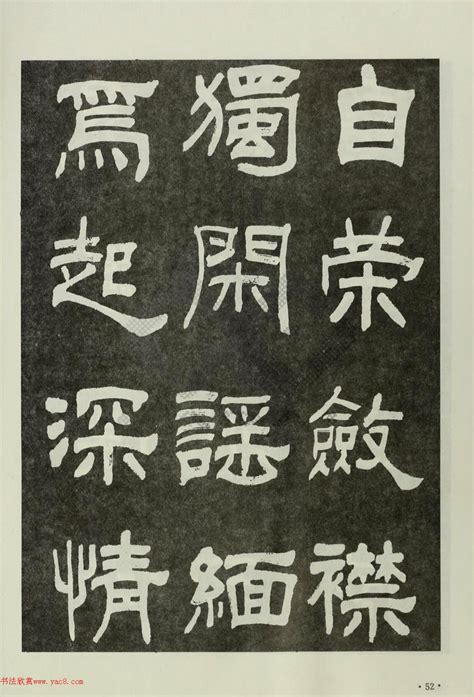 自荣斂襟
獨閑謡緬
焉起深情
书法欣赏www.yac8.com
·52·